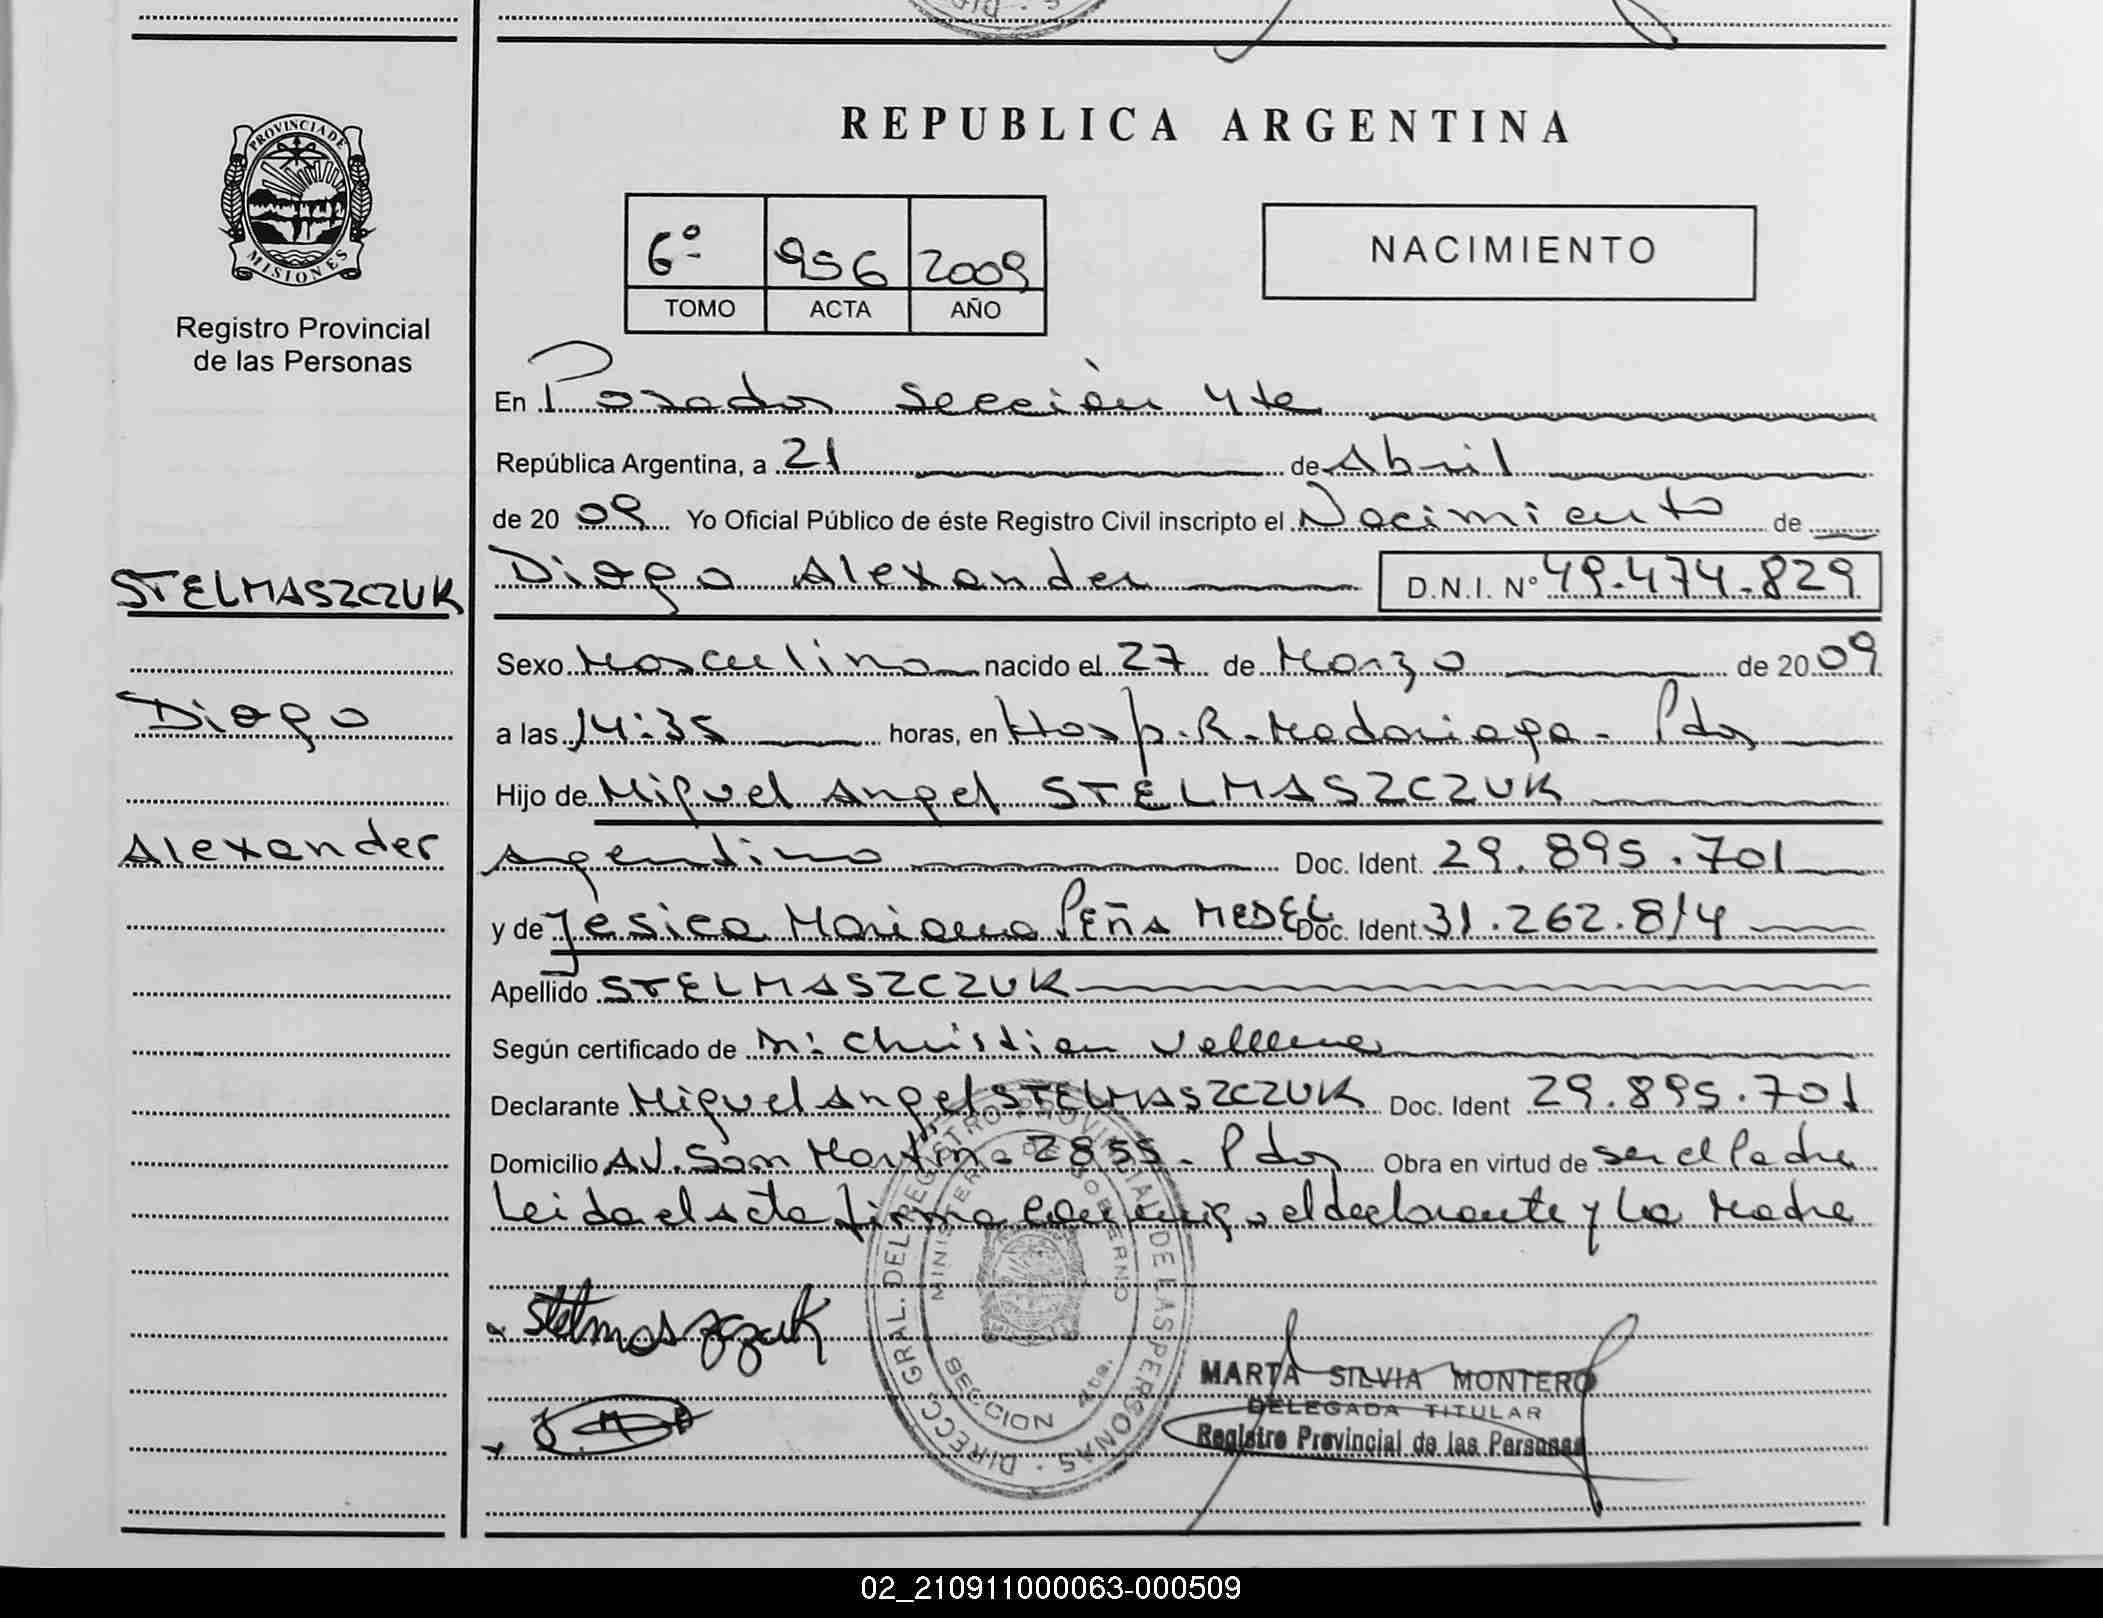 REPUBLICA ARGENTINA
PROVINCIA DE
MISIONES
Registro Provincial
de las Personas
6º 956 2009
TOMO ACTA AÑO
NACIMIENTO
En Posadas Sección 4ta
República Argentina, a 21 de Abril
de 20 09 Yo Oficial Público de éste Registro Civil inscripto el Nacimiento de
STELMASZCZUK
Diego
Alexander
Diego Alexander D.N.I. Nº 49.474.829
Sexo Masculino nacido el 27 de Marzo de 20 09
a las 14:35 horas, en Hosp. R. Madariaga - Pdas
Hijo de Miguel Angel STELMASZCZUK
Argentino Doc. Ident. 29.895.701
y de Jésica Mariana PEÑA MEDEL Doc. Ident. 31.262.814
Apellido STELMASZCZUK
Según certificado de M: Christian
Declarante Miguel Angel STELMASZCZUK Doc. Ident 29.895.701
Domicilio AV. San Martín - 2855 - Pdas Obra en virtud de ser el Padre
Leida el acta firma conmigo el declarante y la Madre
Stelmaszczuk
DIRECC. GRAL. DEL REGISTRO PROVINCIAL DE LAS PERSONAS
MINISTERIO DE GOBIERNO
SECCION 4ta.
MARTA SILVIA MONTERO
DELEGADA TITULAR
Registro Provincial de las Personas
02_210911000063-000509